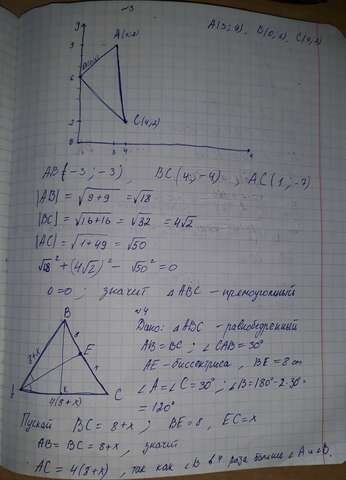 ~3
A(3;9), B(0;6), C(4;2)
y
9
A(3;9)
6
C(4;2)
2
0
3 4
x
AB(-3;-3), BC(4;-4), AC(1;-7)
|AB| = √9+9 = √18
|BC| = √16+16 = √32 = 4√2
|AC| = √1+49 = √50
√18² + (4√2)² - √50² = 0
0=0; значит △ABC - прямоугольный
~4
B
Дано: △ABC - равнобедренный
AB = BC; ∠CAB = 30°
8+x
E
AE - биссектриса, BE = 8 cm
C
∠A = ∠C = 30°; ∠B = 180° - 2·30° =
4(8+x)
= 120°
Пускай BC = 8+x; BE = 8, EC = x
AB = BC = 8+x, значит
AC = 4(8+x), так как ∠B в 4 раза больше ∠A и